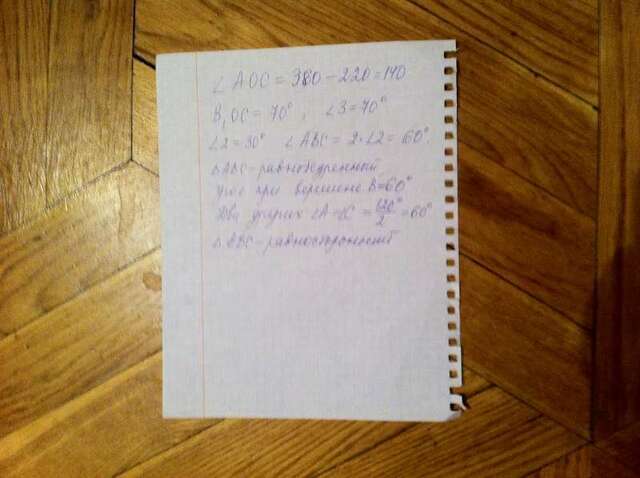 ∠AOC = 360 − 220 = 140
B₁OC = 70°, ∠3 = 70°
∠2 = 30° ∠ABC = 2·∠2 = 60°.
△ABC – равнобедренный
Угол при вершине B = 60°
Два других ∠A = ∠C = 120°/2 = 60°
△ABC – равносторонний